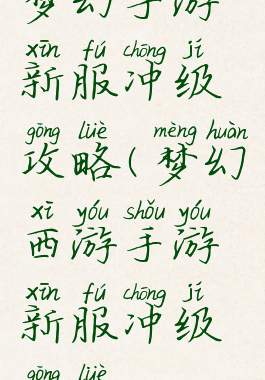 梦幻手游
xīn fú chōng jí
新服冲级
gōng lüè mèng huàn
攻略(梦幻
xī yóu shǒu yóu
西游手游
xīn fú chōng jí
新服冲级
gōng lüè